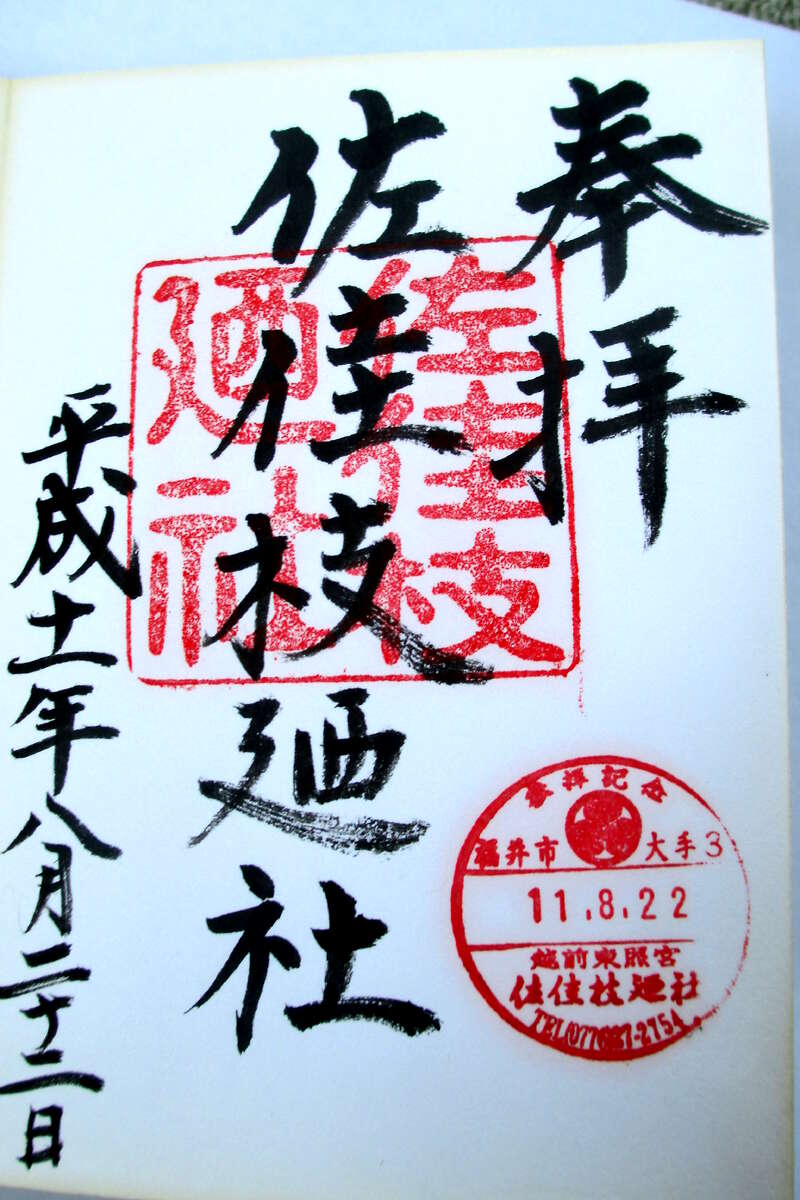 奉拝
佐佳枝廼社
平成十一年八月二十二日
佐佳枝
廼社
参拝記念
福井市 大手3
11.8.22
越前東照宮
佐佳枝廼社